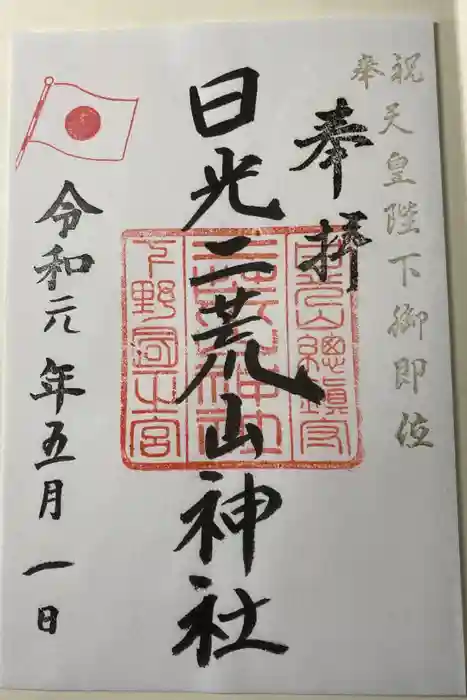 奉祝
天皇陛下御即位
奉拝
日光二荒山神社
日光山總鎮守
二荒山神社
下野國一之宮
令和元年五月一日